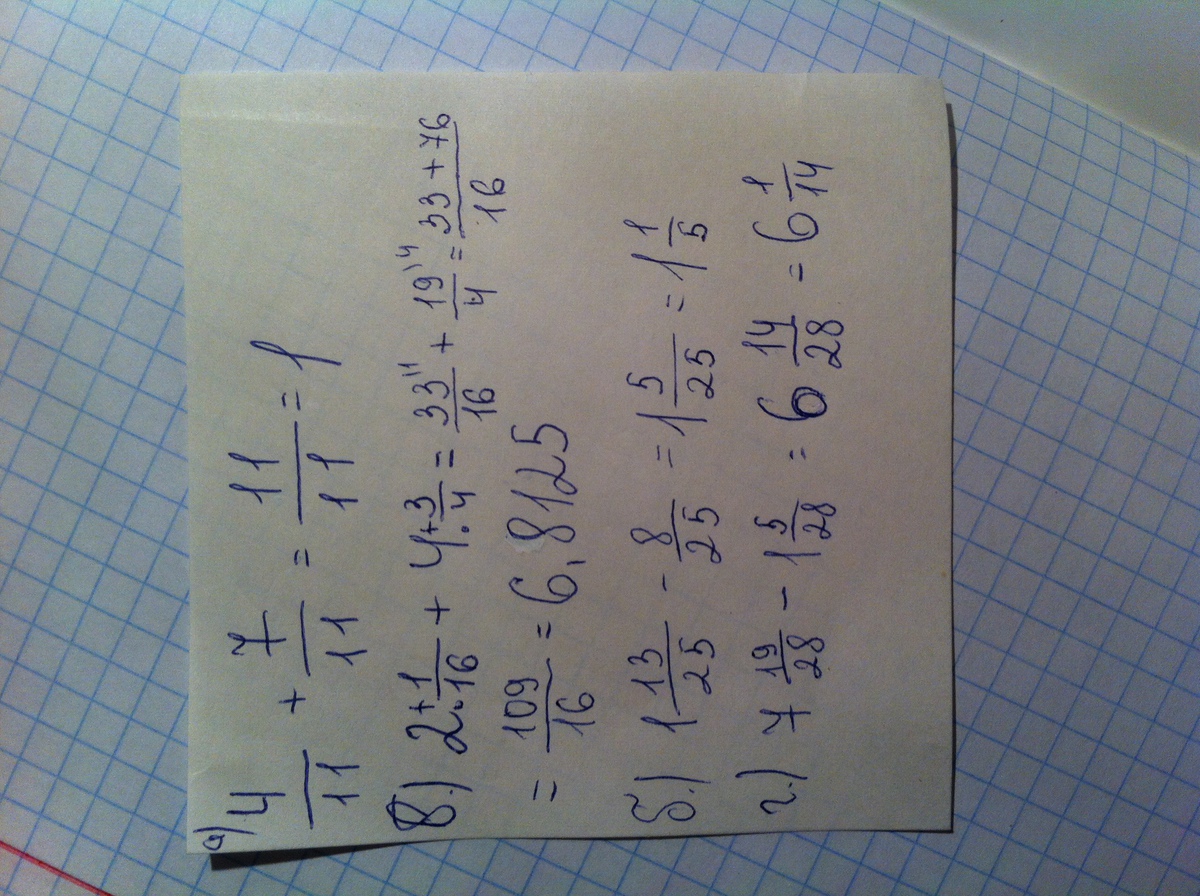 а) 4/11 + 7/11 = 11/11 = 1
в.) 2 1/16 + 4 3/4 = 33/16 + 19/4 = 33 + 76/16
= 109/16 = 6,8125
б.) 1 13/25 - 8/25 = 1 5/25 = 1 1/5
г.) 7 19/28 - 1 5/28 = 6 14/28 = 6 1/14